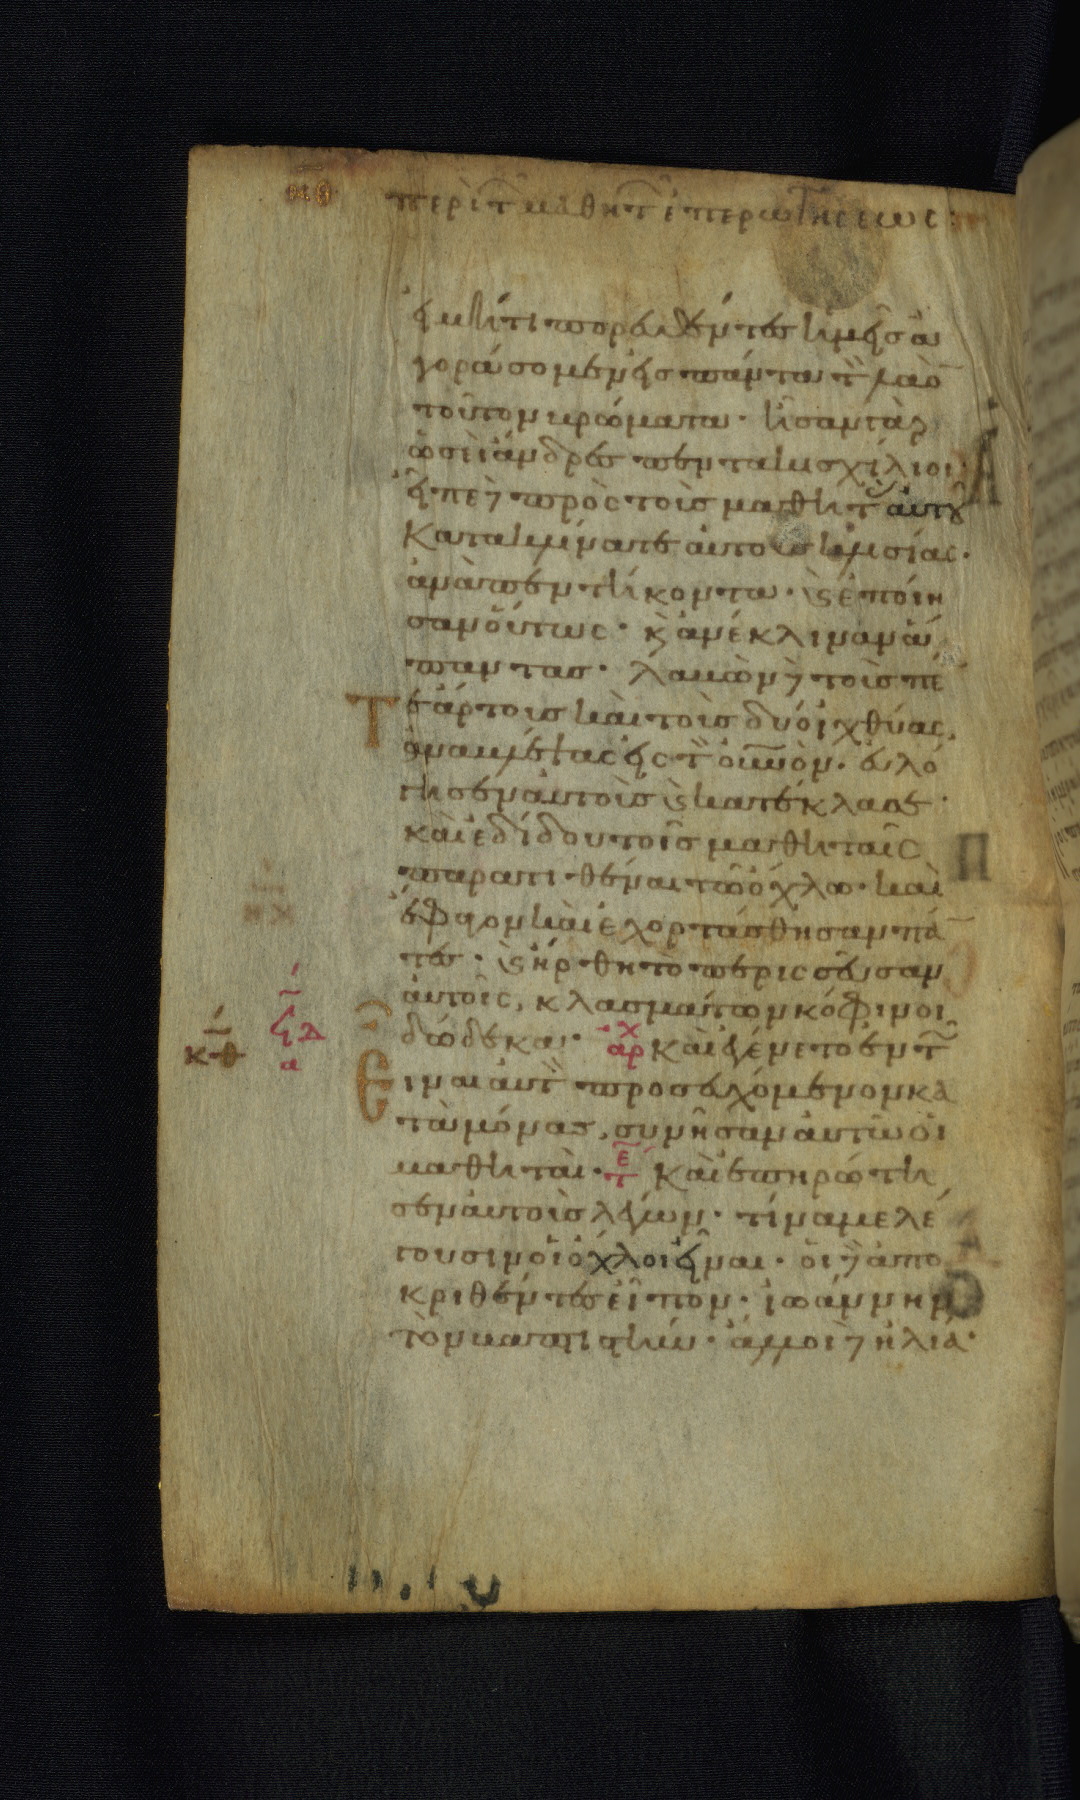 κθ περὶ τ μαθητ ἐπερωτήσεως:
εἰ μήτι πορευθέντες ἡμεῖς ἀ
γοράσομεν εἰς πάντα τ λαὸ
τοῦτον βρώματα· ἦσαν γὰρ
ὡσεὶ ἄνδρες πεντακισχίλιοι·
εἶπε δὲ πρὸς τοὺς μαθητ αὐτοῦ
Κατακλίνατε αὐτοὺς κλισίας·
ἀνὰ πεντήκοντα· καὶ ἐποίη
σαν οὕτως· καὶ ἀνέκλιναν ἅ
παντας· λαβὼν δὲ τοὺς πέ
Τ ε ἄρτους καὶ τοὺς δύο ἰχθύας,
ἀναβλέψας εἰς τ οὐνον· εὐλό
γησεν αὐτοὺς καὶ κατέκλασε·
καὶ ἐδίδου τοῖς μαθηταῖς
παρατιθέναι τῶ ὄχλω· καὶ
ἔφαγον καὶ ἐχορτάσθησαν πά
τες· καὶ ἤρθη τὸ περισσεῦσαν
αὐτοῖς, κλασμάτων κόφινοι
δώδεκα· αρχ καὶ ἐγένετο ἐν τ
Ε ιναι αὐτ προσευχόμενον κα
ταμόνας, συνῆσαν αὐτῶ οἱ
μαθηταί· τε Καὶ ἐπηρώτη
σεν αὐτοὺς λέγων· τίνα με λέ
γουσιν οἱ ὄχλοι εἶναι· οἱ δὲ ἀπο
κριθέντες εἶπον· ἰωάννην
τὸν βαπτιστήν· ἄλλοι δὲ ἠλιά·